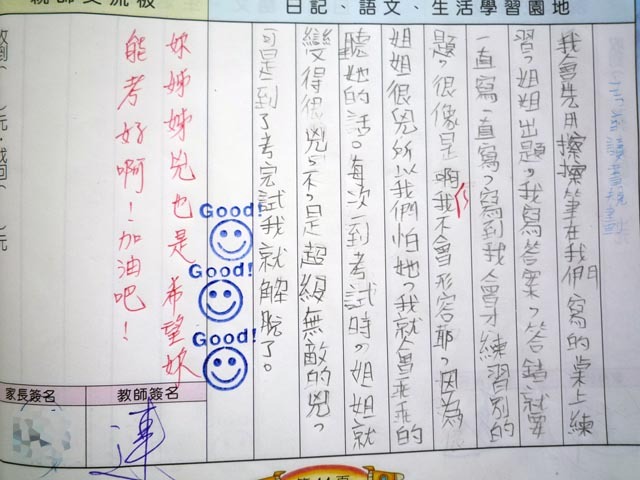 親師交流板
日記、語文、生活學習園地
考前讀書規劃
我會先用擦擦筆在我們寫的桌上練
習，姐姐出題，我寫答案，答錯就要
一直寫一直寫，寫到我會才練習別的
題，很像是啊我不會形容耶，因為
姐姐很兇所以我們怕她，我就會乖乖的
聽她的話。每次一到考試時，姐姐就
變得很兇，不，是超級無敵的兇，
可是到了考完試我就解脫了。
Good!
Good!
Good!
妳姊姊兇也是希望妳
能考好啊！加油吧！
教師簽名
連
家長簽名